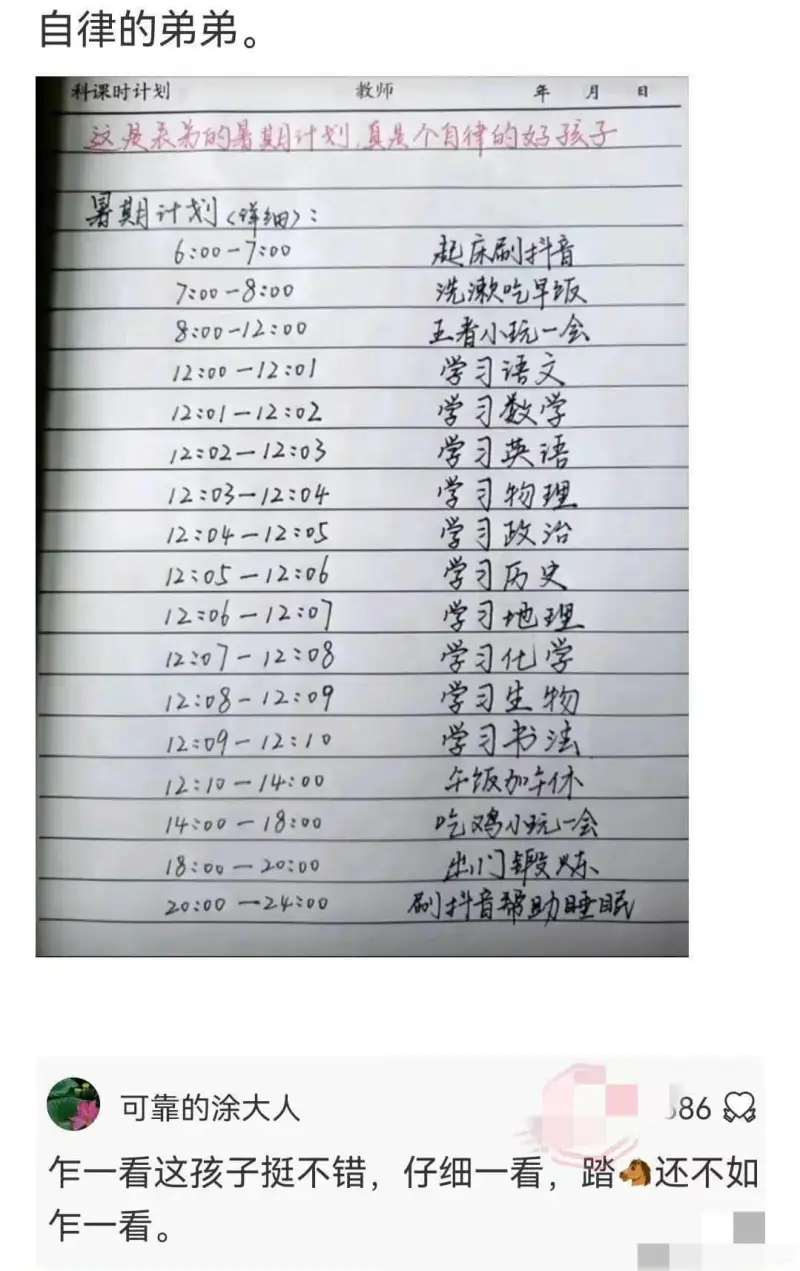 自律的弟弟。
科课时计划 教师 年 月 日
这是表弟的暑期计划,真是个自律的好孩子
暑期计划(详细):
6:00-7:00 起床刷抖音
7:00-8:00 洗漱吃早饭
8:00-12:00 王者小玩一会
12:00-12:01 学习语文
12:01-12:02 学习数学
12:02-12:03 学习英语
12:03-12:04 学习物理
12:04-12:05 学习政治
12:05-12:06 学习历史
12:06-12:07 学习地理
12:07-12:08 学习化学
12:08-12:09 学习生物
12:09-12:10 学习书法
12:10-14:00 午饭加午休
14:00-18:00 吃鸡小玩一会
18:00-20:00 出门锻炼
20:00-24:00 刷抖音帮助睡眠
可靠的涂大人
乍一看这孩子挺不错，仔细一看，踏🐴还不如
乍一看。